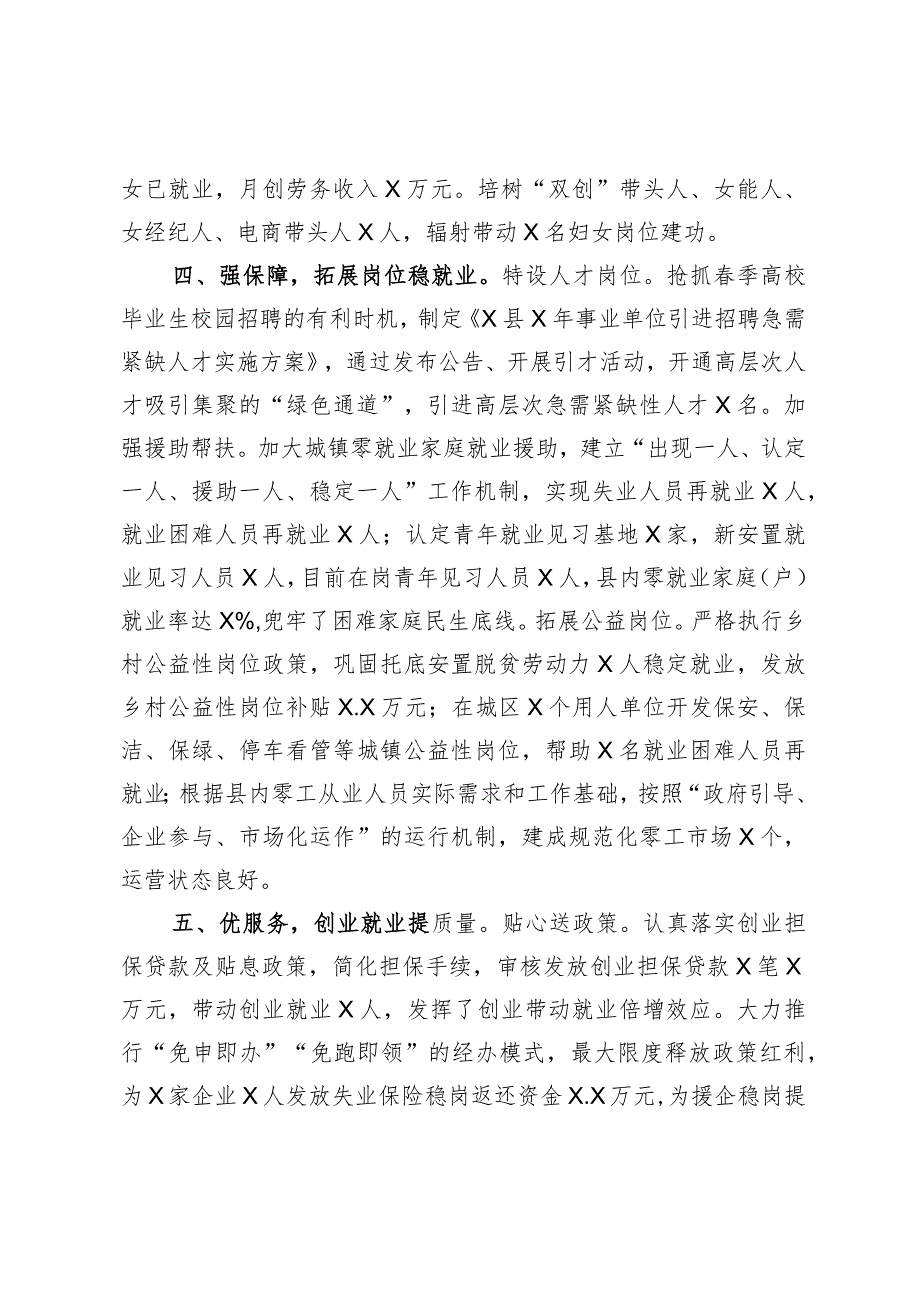 女已就业，月创劳务收入X万元。培树“双创”带头人、女能人、
女经纪人、电商带头人X人，辐射带动X名妇女岗位建功。
四、强保障，拓展岗位稳就业。特设人才岗位。抢抓春季高校
毕业生校园招聘的有利时机，制定《X县X年事业单位引进招聘急需
紧缺人才实施方案》，通过发布公告、开展引才活动，开通高层次人
才吸引集聚的“绿色通道”，引进高层次急需紧缺性人才X名。加
强援助帮扶。加大城镇零就业家庭就业援助，建立“出现一人、认定
一人、援助一人、稳定一人”工作机制，实现失业人员再就业X人，
就业困难人员再就业X人；认定青年就业见习基地X家，新安置就
业见习人员X人，目前在岗青年见习人员X人，县内零就业家庭（户）
就业率达X%,兜牢了困难家庭民生底线。拓展公益岗位。严格执行乡
村公益性岗位政策，巩固托底安置脱贫劳动力X人稳定就业，发放
乡村公益性岗位补贴X.X万元；在城区X个用人单位开发保安、保
洁、保绿、停车看管等城镇公益性岗位，帮助X名就业困难人员再
就业；根据县内零工从业人员实际需求和工作基础，按照“政府引导、
企业参与、市场化运作”的运行机制，建成规范化零工市场X个，
运营状态良好。
五、优服务，创业就业提质量。贴心送政策。认真落实创业担
保贷款及贴息政策，简化担保手续，审核发放创业担保贷款X笔X
万元，带动创业就业X人，发挥了创业带动就业倍增效应。大力推
行“免申即办”“免跑即领”的经办模式，最大限度释放政策红利，
为X家企业X人发放失业保险稳岗返还资金X.X万元,为援企稳岗提